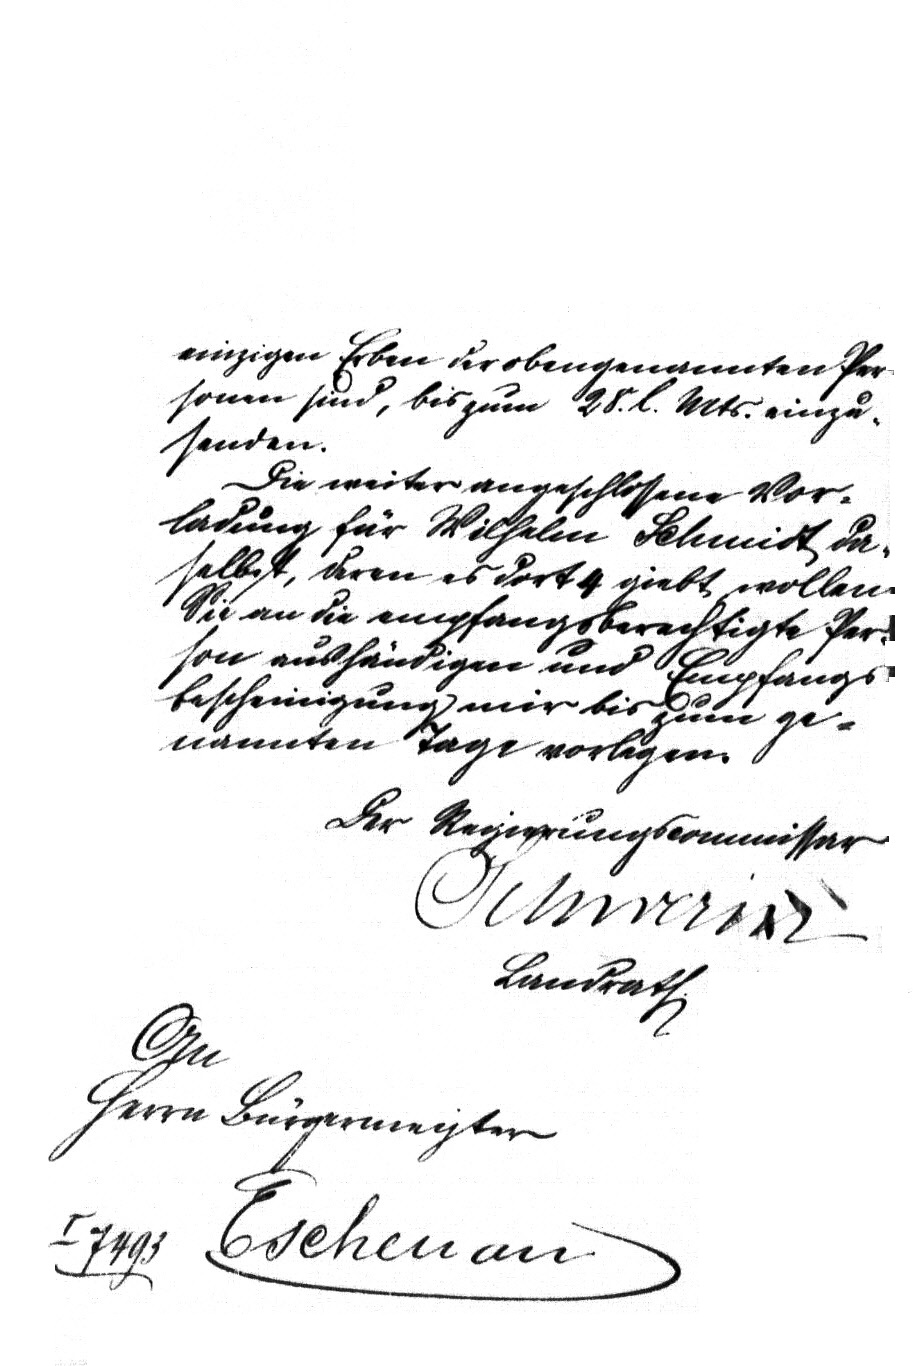 einzigen Erben der obengenannten Per-
sonen sind, bis zum 28. l. Mts. einzu-
senden.
Die weiter angeschlossene Vor-
ladung für Wilhelm Schmidt da-
selbst, deren es dort 4 giebt, wollen
Sie an die empfangsberechtigte Per-
son aushändigen und Empfangs-
bescheinigung mir bis zum ge-
nannten Tage vorlegen.
Der Regierungscommissar
Landrath.
An
Herrn Bürgermeister
I 7493 Eschenau